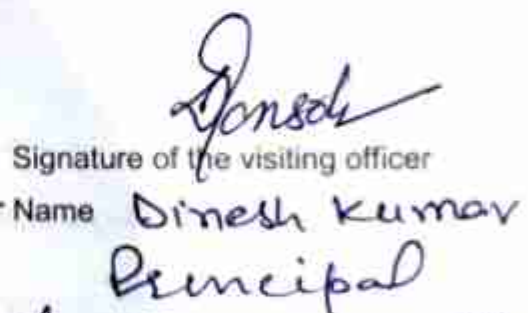 Signature of the visiting officer
Name Dinesh Kumar
Principal